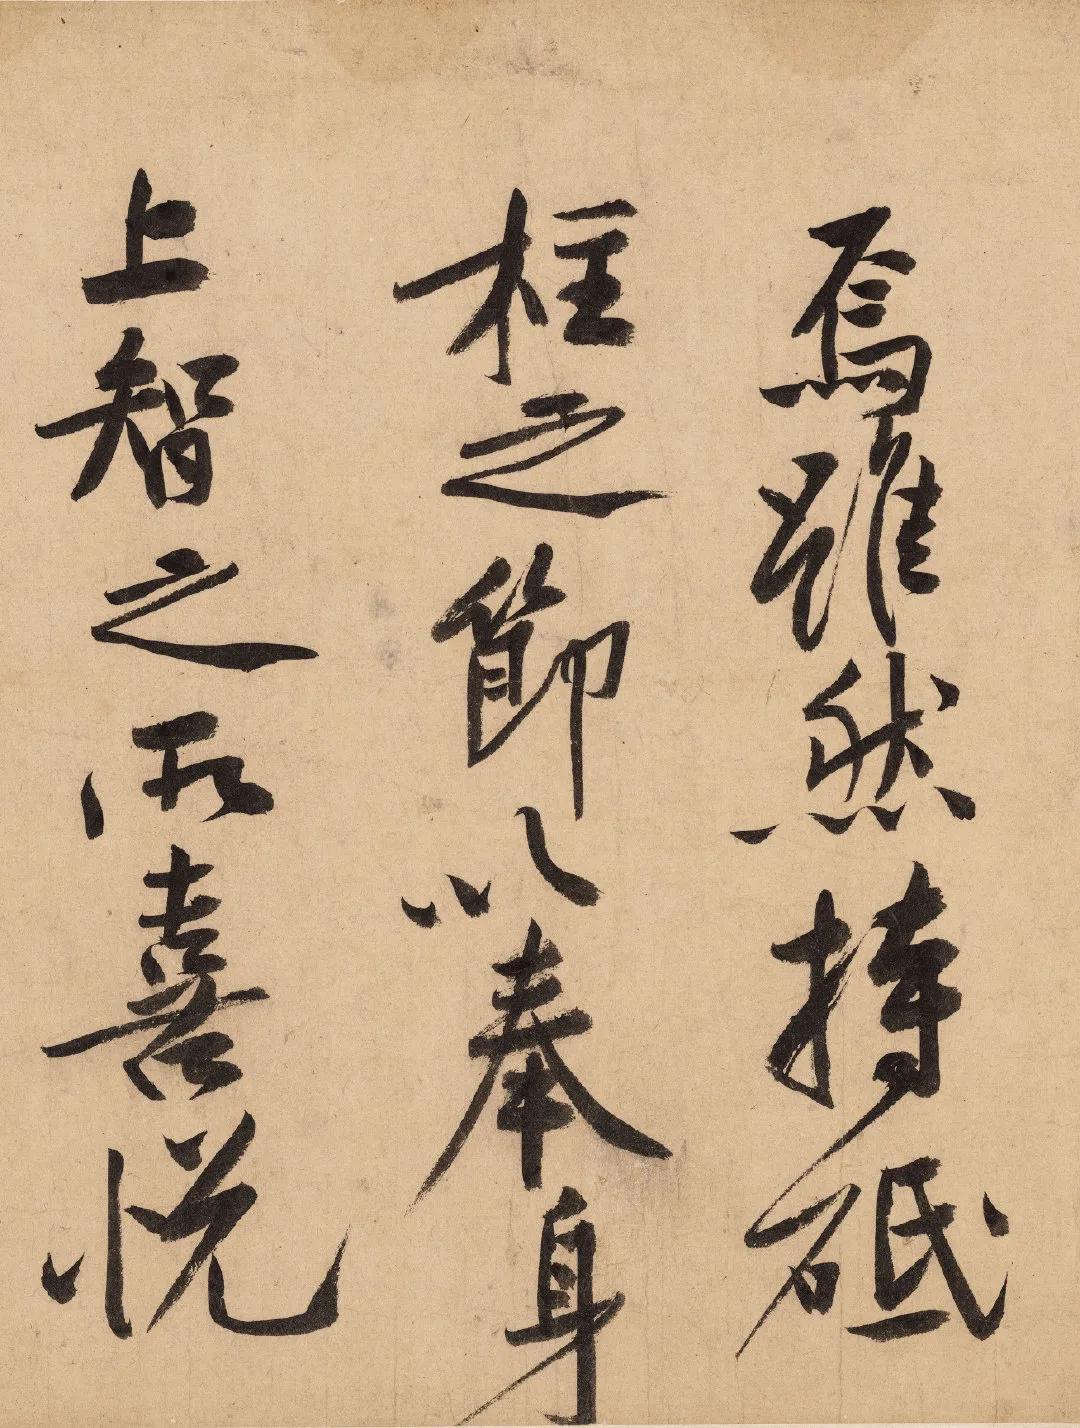 焉雖然持砥
柱之節以奉身
上智之所喜悅